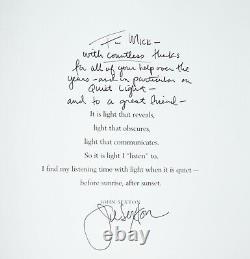 To Mick—
with countless thanks
for all of your help over the
years—and in particular on
Quiet Light—
and to a great friend—
It is light that reveals,
light that obscures,
light that communicates.
So it is light I "listen" to.
I find my listening time with light when it is quiet—
before sunrise, after sunset.
JOHN SEXTON
John Sexton